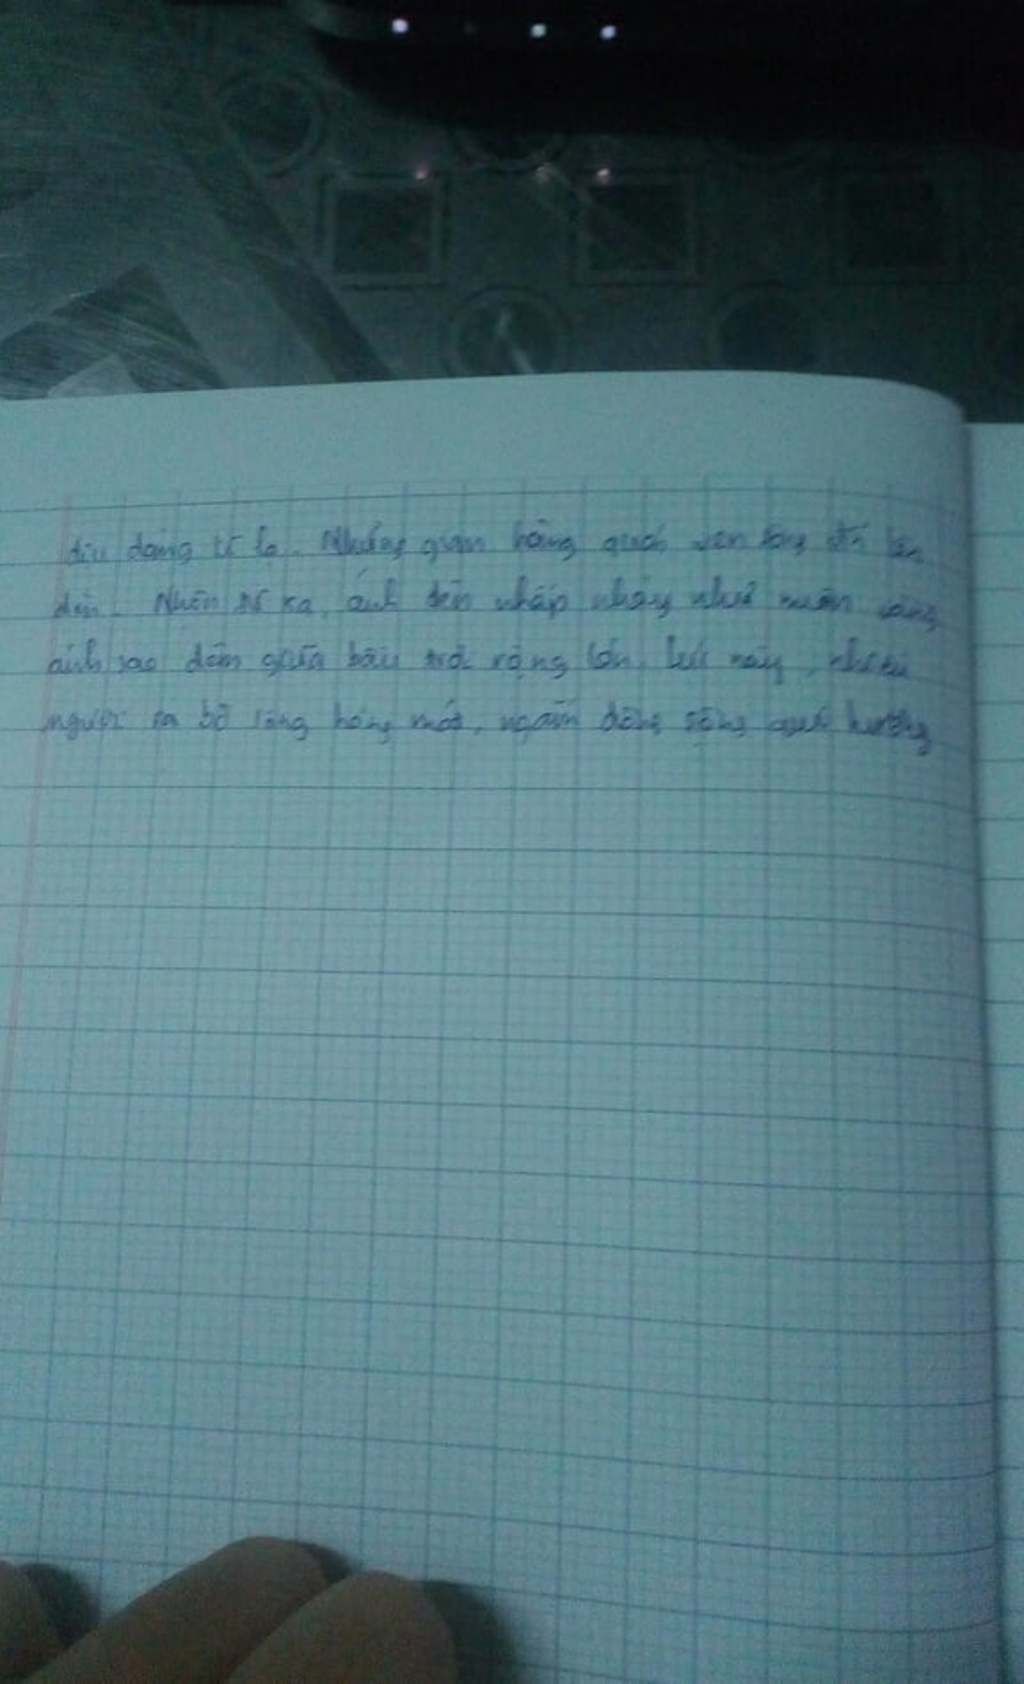 dịu dàng lạ. Những gian hàng quán ven sông đã lên
đèn. Nhìn từ xa, ánh đèn nhấp nháy như muôn vàng
ánh sao đêm giữa bầu trời rộng lớn. Lúc này, nhiều
người ra bờ sông hóng mát, ngắm dòng sông quê hương